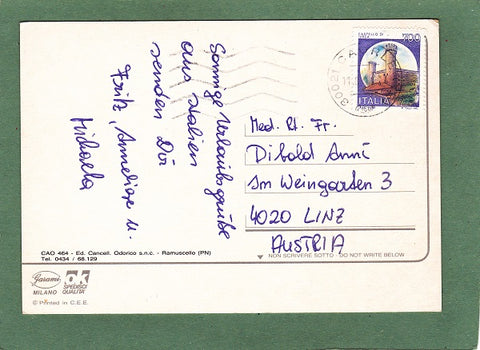 Sonnige Urlaubsgrüße
aus Italien
senden Dir
Fritz, Anneliese u.
Michaela
700
ITALIA
30021
Med. Rt. Fr.
Dibold Anni
Im Weingarten 3
4020 LINZ
AUSTRIA
CAO 464 - Ed. Cancell. Odorico s.n.c. - Ramuscello (PN)
Tel. 0434 / 68.129
NON SCRIVERE SOTTO DO NOT WRITE BELOW
Garami
MILANO
SPEDISCI
QUALITA'
© Printed in C.E.E.